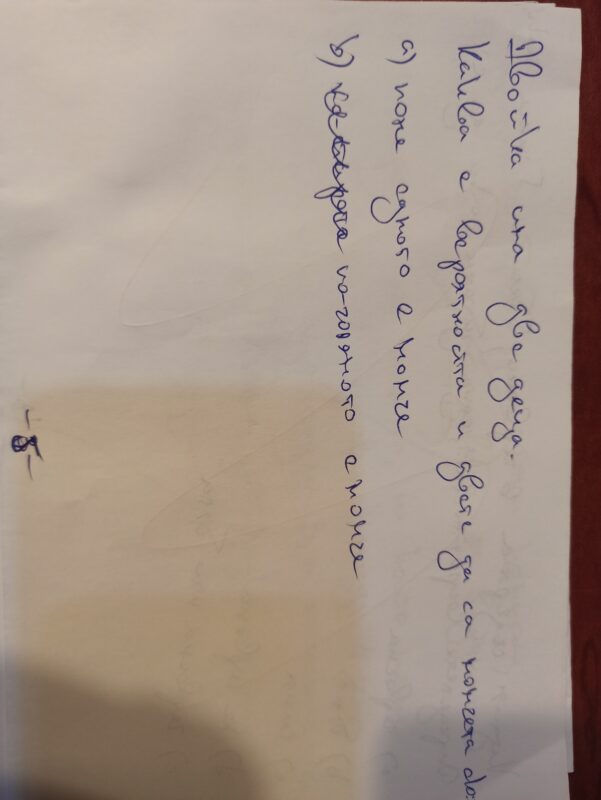 Двойка има две деца.
Каква е вероятността и двете да са момчета ако:
а) поне едното е момче
b) по-голямото е момче
-8-